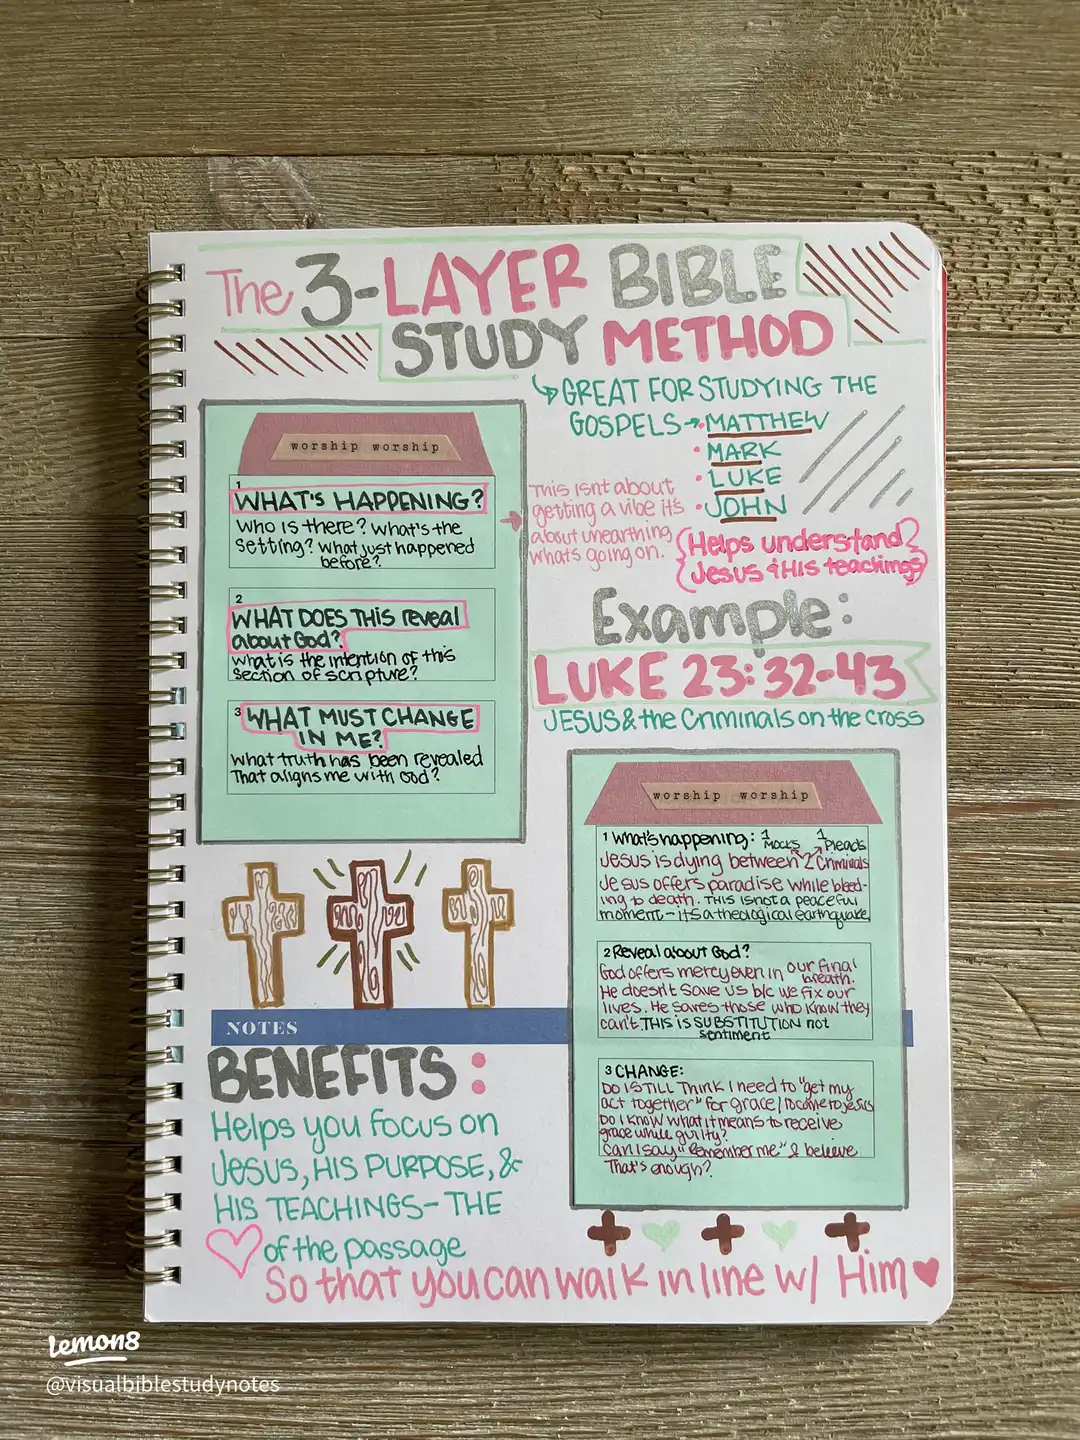 The 3-LAYER BIBLE
STUDY METHOD
GREAT FOR STUDYING THE
GOSPELS → • MATTHEW
• MARK
• LUKE
• JOHN
worship worship
1
WHAT'S HAPPENING?
Who is there? What's the
setting? What just happened
before?
This isnt about
getting a vibe it's
about unearthing
whats going on.
{Helps understand}
{Jesus & His teachings}
2
WHAT DOES THIS reveal
about God?
What is the intention of this
section of scripture?
3 WHAT MUST CHANGE
IN ME?
What truth has been revealed
That aligns me with God?
Example:
LUKE 23:32-43
JESUS & the Criminals on the cross
worship worship
1 What's happening: 1 Mocks 1 Pleads
Jesus is dying between 2 Criminals
Jesus offers paradise while bleed-
ing to death. THIS IS not a peaceful
moment - it's a theological earthquake
2 Reveal about God?
God offers mercy even in our final
breath.
He doesn't save us b/c we fix our
lives. He saves those who know they
can't. THIS IS SUBSTITUTION not
sentiment
3 CHANGE:
DO I STILL Think I need to "get my
act together" for grace/to come to Jesus
Do I know what it means to receive
grace while guilty?
Can I say "Remember me" & believe
That's enough?
NOTES
BENEFITS:
Helps you focus on
Jesus, HIS PURPOSE, &
HIS TEACHINGS - THE
♡ of the passage
So that you can walk in line w/ Him ♥
Lemon8
@visualbiblestudynotes